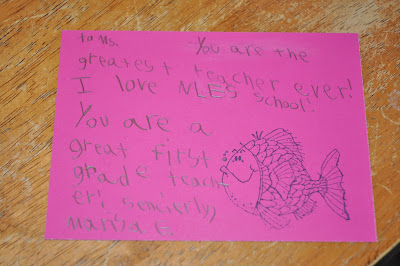 to Ms. You are the
greatest teacher ever!
I love NLES school!
You are a
great first
grade teach-
er! sencierly,